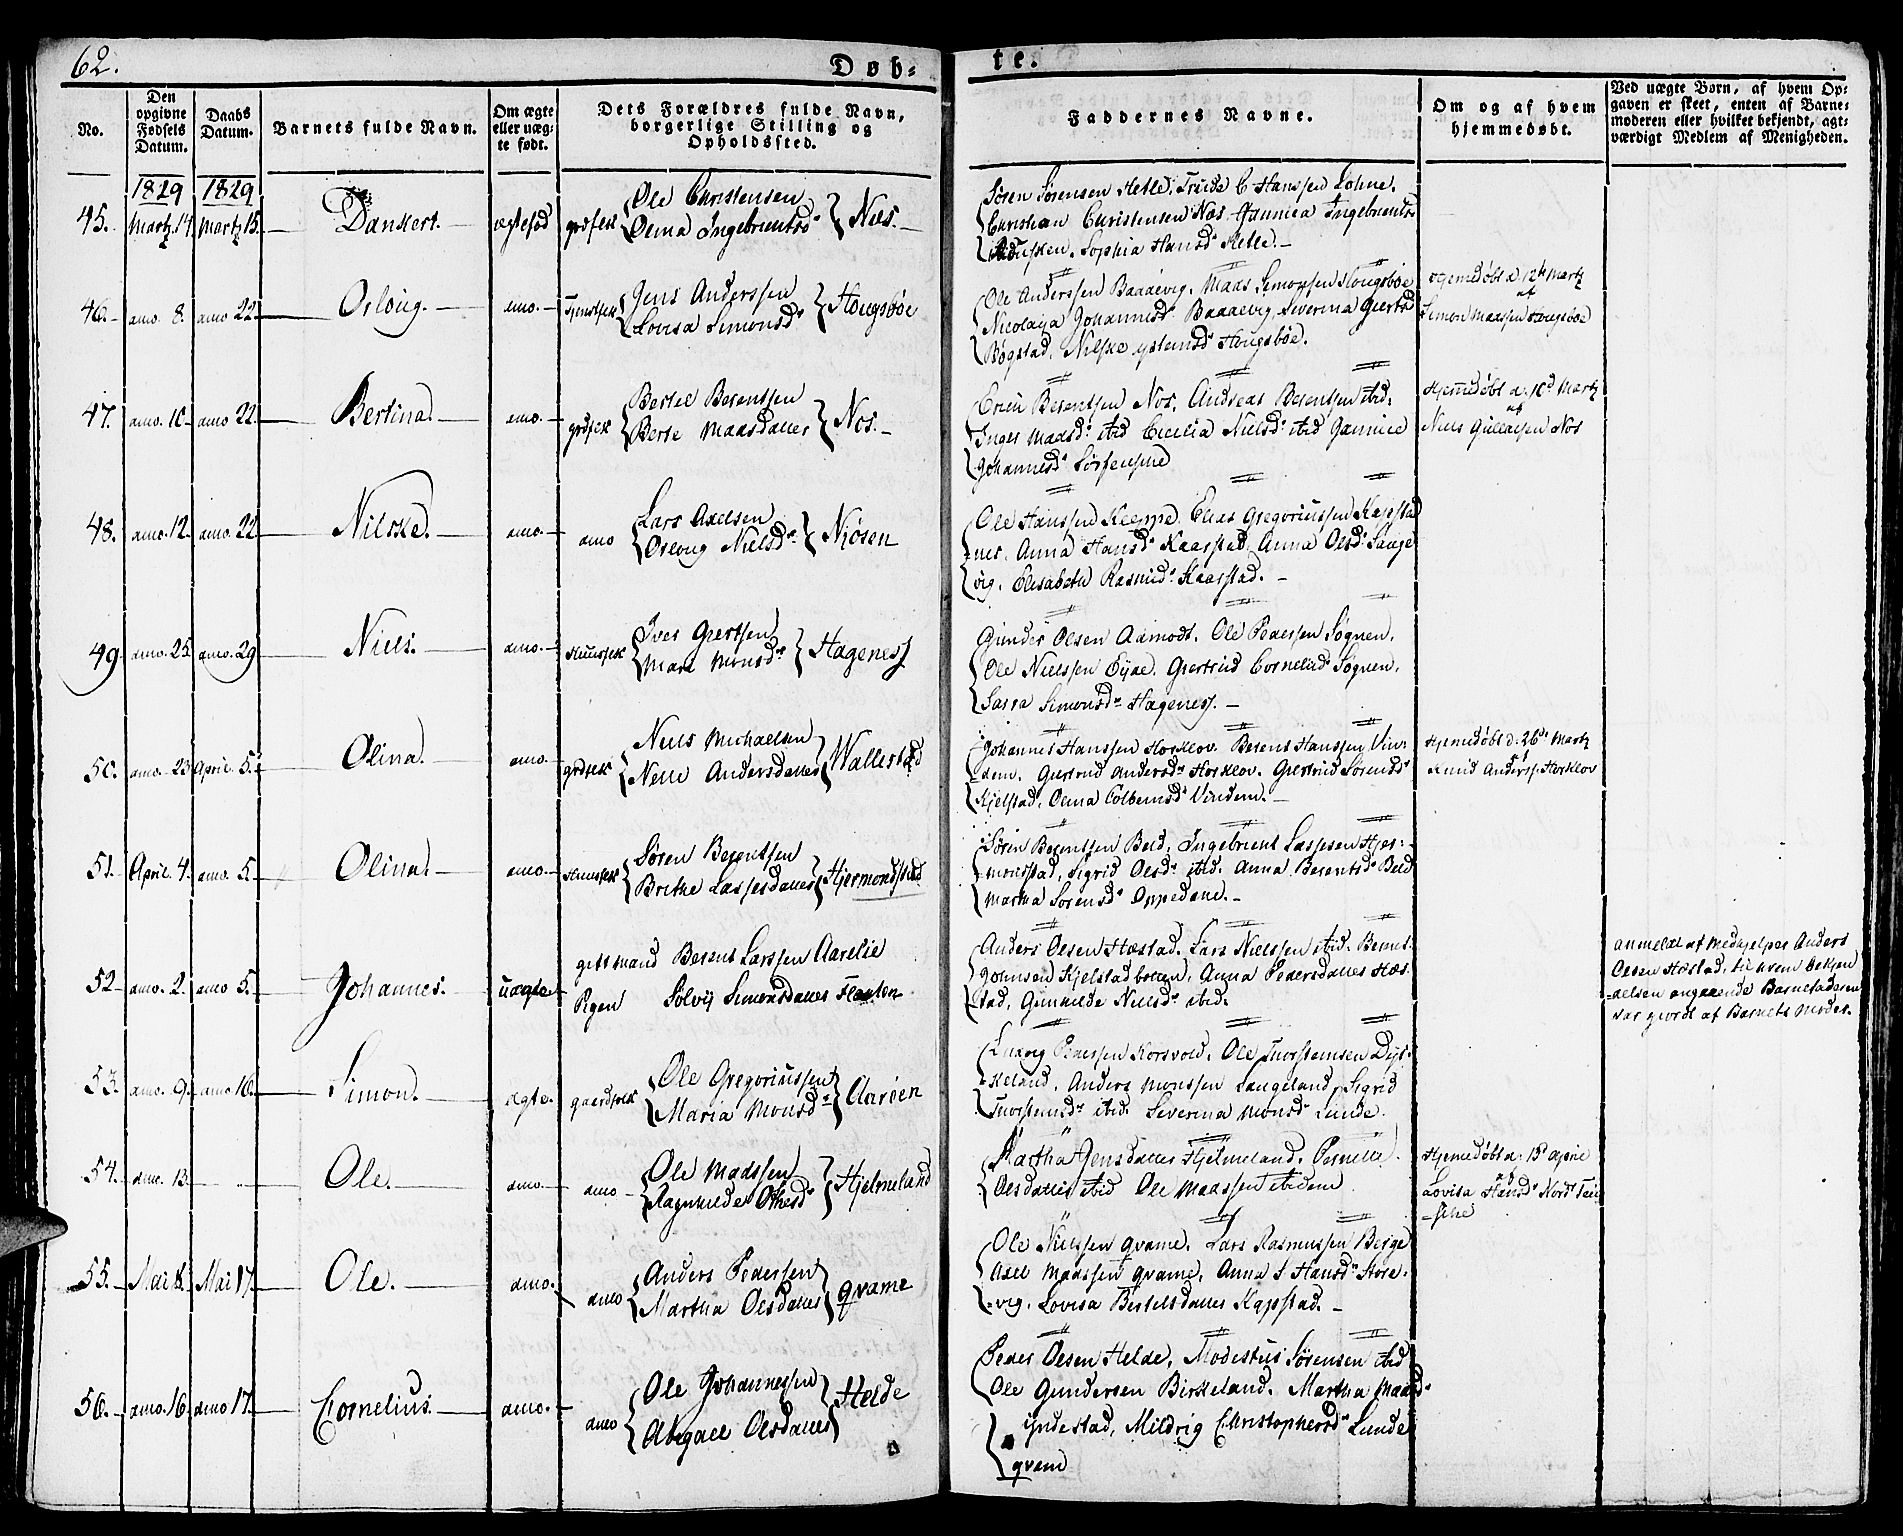 62.
Døb-
te.
No.
Den opgivne Fødsels Datum.
Daabs Datum.
Barnets fulde Navn.
Om ægte eller uægte født.
Dets Forældres fulde Navn, borgerlige Stilling og Opholdssted.
Faddernes Navne.
Om og af hvem hjemmedøbt.
Ved uægte Børn, af hvem Opgaven er skeet, enten af Barnemoderen eller hvilket bekjendt, agtværdigt Medlem af Menigheden.
1829 1829
45. Martz 14 Martz 15. Dankert. ægtefød grdfolk Ole Christensen
Olina Ingebrigtsd Nies.
Søren Sørensen Helle. Hanssen Lohne.
Christian Christensen Nos Jannica Ingebrigtsd
Sophia Hansd Helle.
46. dmo. 8. dmo 22. Osloug. dmo. Jens Anderssen
Lovisa Simonsd Hougsbøe
Ole Anderssen Baadevig. Maas Simonsen Hougsbøe
Nicolaija Johannisd Baadevig Severina Giertsd
Bøgstad. Nilske Hougsbøe.
Hjemedøbt d. 12te Martz
af
Simon Maassen Hougsbøe
47. dmo. 10. dmo 22. Bertina. dmo. grdfolk Bertel Berentsen
Berte Maasdatter Nos.
Berentsen Nos. Andreas Berentsen ibid.
Inger Maasd ibid Cecilia Nielsd ibid Jannice
Johannesd
Hjemedøbt d. 10d Martz
af
Niels Nos
48. dmo. 12. dmo. 22. Nilske. dmo. dmo Lars Axelsen
Osloug Nielsd Niøsen
Ole Hanssen Kleppe. Elias Gregoriussen Kapstad
nes. Anna Hansd Kaarstad. Anna Olsd Lange
vig. Elisabeth Rasmusd Kaarstad.
49. dmo. 25. dmo. 29. Niels. dmo. Huusfolk Iver Giertsen
Mari Monsd Hagenes
Gunder Olsen Aamodt. Ole Pedersen Søgnen.
Ole Nielssen Eyde. Giertrud Cornelisd Søgnen.
Sarra Simonsd Hagenes.
50. dmo. 23 April. 5. Olina. dmo. grdfolk Niels Michaelsen
Andersdatter Wallestad
Johannes Hanssen Horklov. Berent Hanssen Vin-
dem. Giertrud Andersd Horklov. Giertrud Sørensd
Kjelstad. Olina Colbensd Vindem.
Hjemedøbt d. 26de Martz
af
Knud Anderss. Horklov
51. April. 4. dmo. 5. Olina. dmo. Huusfolk Søren Berentsen
Brithe Lassesdatter Hjermondstad
Søren Berentsen Beld. Ingebrigt Lassesen Hjer-
mondstad. Sigrid Olsd ibid. Anna Berentsd Beld
Martha Sørensd Oppedane.
52 dmo. 2. dmo 5. Johannes. uægte gift mand Berent Larssen Aarelie
Pigen Solvij Simonsdatter Fleten
Anders Olsen Hæstad. Lars Nielssen ibid.
Johnsen Kjelstadbotten. Anna Pedersdatter Hæs-
tad. Gunhilde Nielsd ibid.
anmeldt af Medhjelper Anders
Olsen Hæstad, til hvem bekjen
delsen angaaende Barnefaderen
var giordt af Barnets moder.
53. dmo. 9. dmo 10. Simon. ægte. gaardfolk Ole Gregoriussen
Maria Monsd Aarøen
Ludvig Pedersen Korsvold. Ole Thorstensen Dys-
keland. Anders Monssen Langeland. Sigrid
Thorstensd ibid. Severina Monsd Lunde.
54. dmo. 13. Ole. dmo. dmo Ole Maassen
Ragnhilde Hjelmeland
Martha Jensdatter Hjelmeland. Pernille
Olsdatter ibid Ole Maassen ibidem
Hjemedøbt d. 13d April
af
Lovisa Hansd Nord
55. Mai Mai 17. Ole. dmo. dmo Anders Pedersen
Martha Olsdatter qvame
Ole Nielssen qvame. Lars Rasmussen Berge
Axel Maassen qvame. Anna S Hansd Store-
vig. Lovisa Bertelsdatter Kapstad.
56. dmo. 16. dmo 17. Cornelius. dmo. dmo Ole Johannessen
Abegael Olsdatter Helde
Peder Olsen Helde. Modestus Sørensen ibid
Ole Gundersen Birkeland. Martha Maasd
Yndestad, Mildrig Christophersd Lunde
qvam